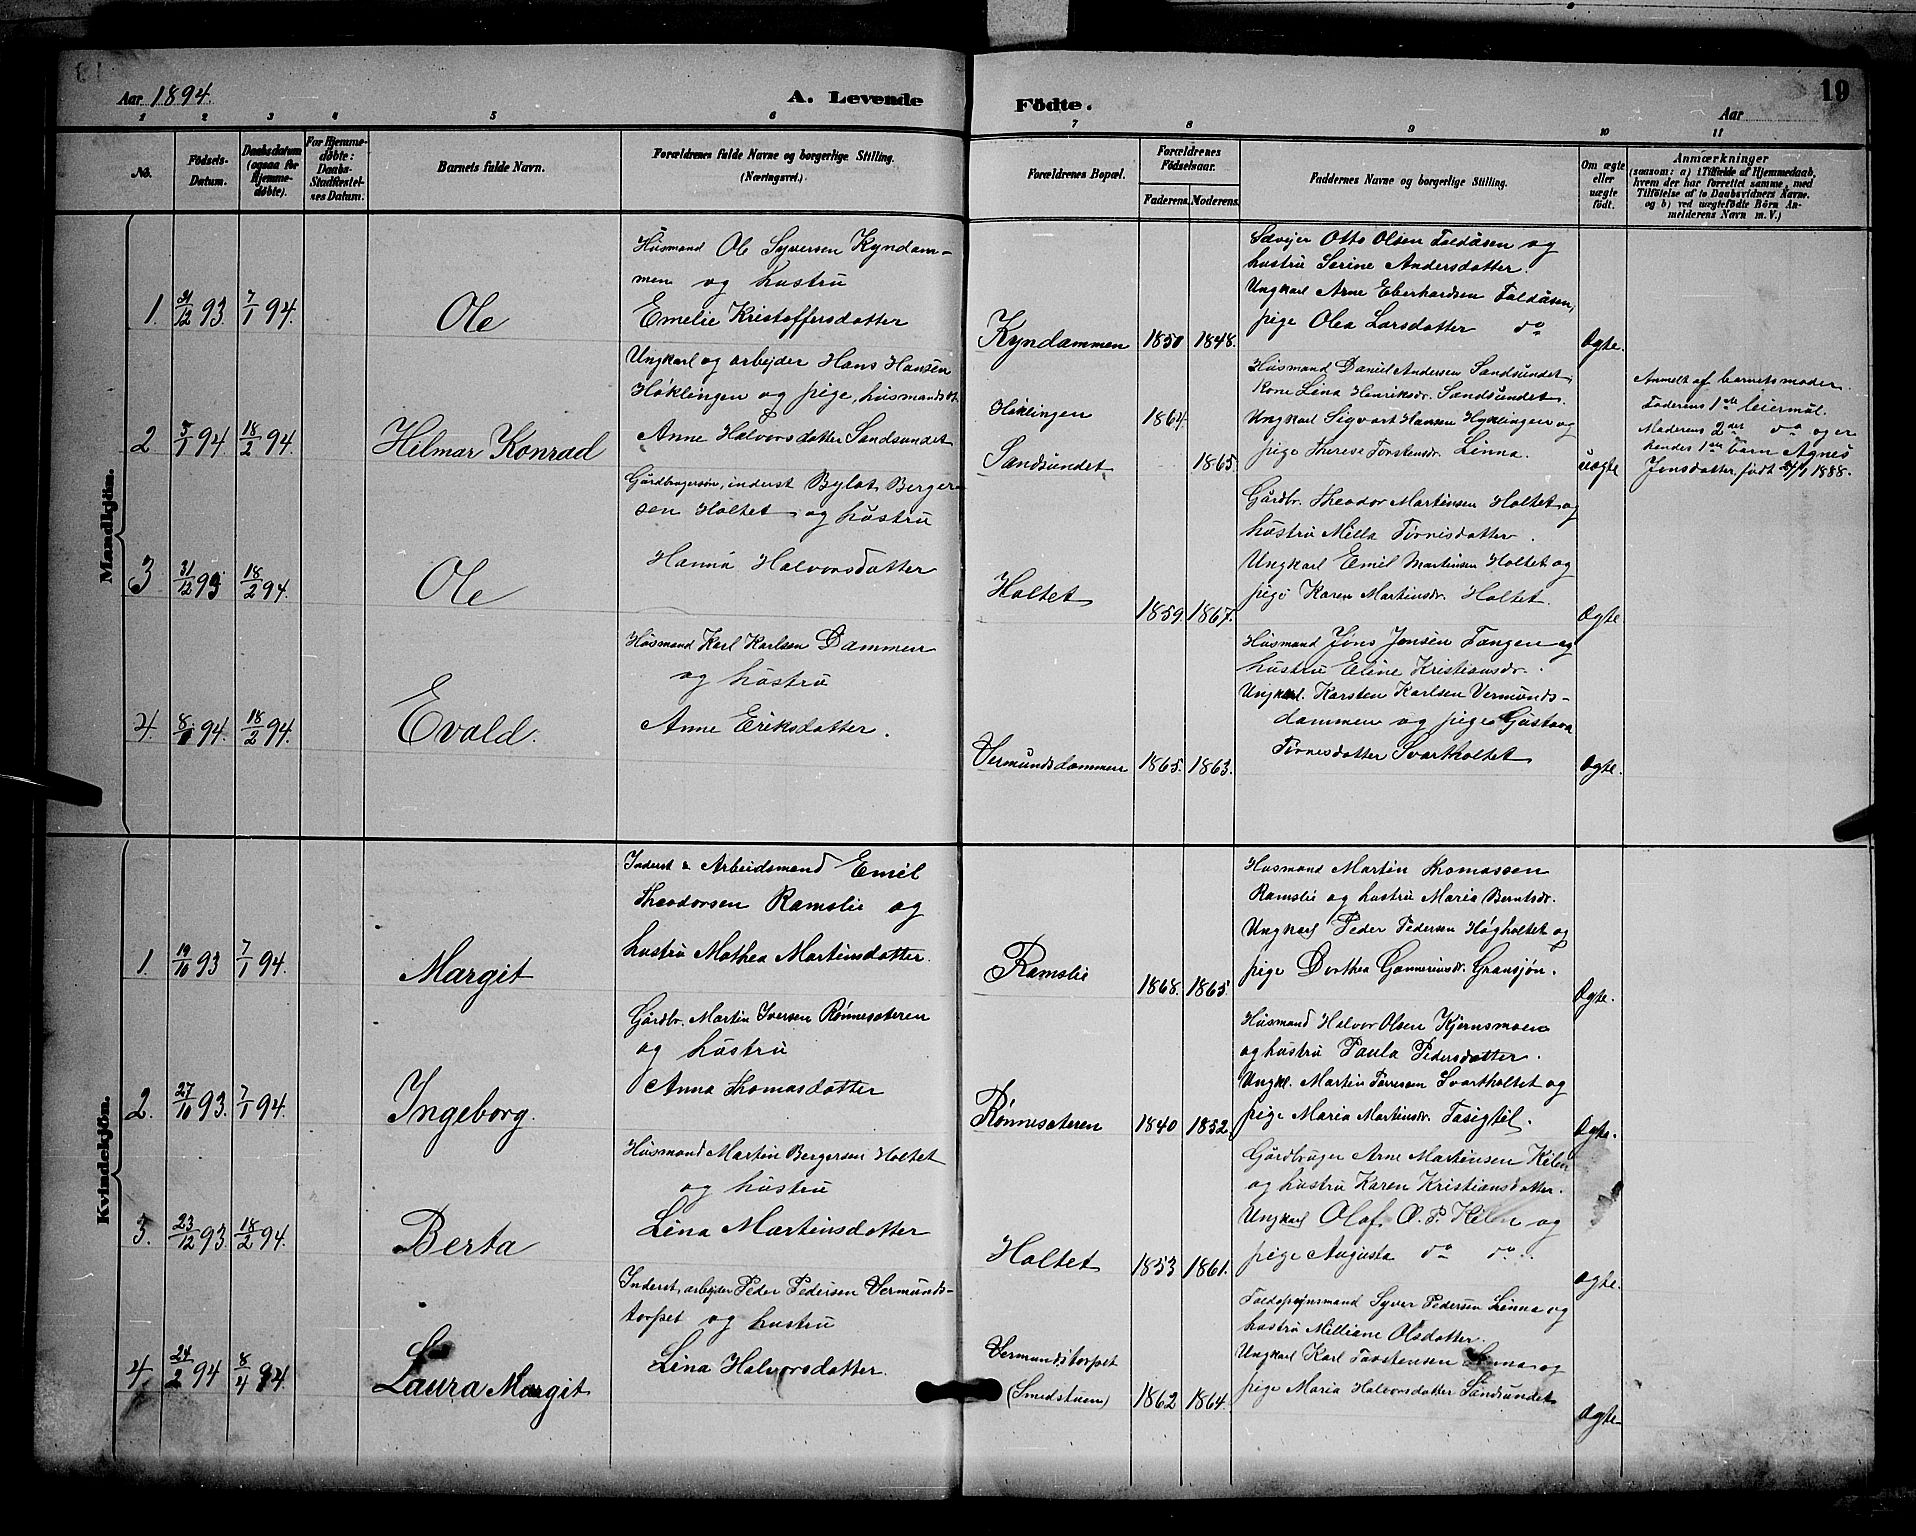 Aar 1894.
A. Levende Födte.
19
Aar
1 2 3 4 5 6 7 8 9 10 11
No.
Födsels-
Datum.
Daabsdatum
(ogsaa for
Hjemme-
døbte).
For Hjemme-
døbte:
Daabs-
Stadfæstel-
ses Datum.
Barnets fulde Navn.
Forældrenes fulde Navne og borgerlige Stilling.
(Næringsvei.)
Forældrenes Bopæl.
Forældrenes
Födselsaar.
Faderens. Moderens.
Faddernes Navne og borgerlige Stilling.
Om ægte
eller
uægte
født.
Anmærkninger
(saasom: a) i Tilfælde af Hjemmedaab,
hvem der har forrettet samme, med
Tilföielse af to Daabsvidners Navne.
og b) ved uægtefödte Börn An-
melderens Navn m. V.)
Mandkjön.
1. 31/12 93 7/1 94. Ole
Husmand Ole Syversen Kyndam-
men og hustru
Emelie Kristoffersdatter
Kyndammen 1850 1848.
Sævejer Otto Olsen Faldåsen og
hustru Serine Andersdatter.
Ungkarl Arne Eberhardsen Faldåsen,
pige Olea Larsdatter do
Ægte.
2 5/1 94. 18/2 94. Helmar Konrad
Ungkarl og arbejder Hans Hansen
Høklingen og pige, husmandsdt.
Anne Halvorsdatter Sandsundet
Høklingen 1864.
Sandsundet 1865.
Husmand Daniel Andersen Sandsundet,
Kone Lina Henriksdr. Sandsundet.
Ungkarl Sigvart Hansen Hyklingen og
pige Therese Torstensdr. Linna.
uægte
Anmelt af barnets moder.
Faderens 1ste leiermål.
Moderens 2det do og er
hendes 1ste barn Agnes
Jonsdatter, født 1888.
3 31/12 93 18/2 94. Ole
Gårdbrugersøn, inderst Bylat Berger-
sen Holtet og hustru
Hanna Halvorsdatter
Holtet 1859. 1867.
Gårdbr. Theodor Martinsen Holtet og
hustru Mella Tørrisdatter.
Ungkarl Emil Martinsen Holtet og
pige Karen Martinsdr. Holtet.
Ægte
4 8/1 94. 18/2 94. Evald.
Husmand Karl Karlsen Dammen
og hustru
Anne Eriksdatter.
Vermundsdammen 1865. 1863.
Husmand Jøns Jensen Tangen og
hustru Eline Kristiansdr.
Ungkarl. Karsten Karlsen Vermunds-
dammen og pige Gustava
Tørrisdatter Svartholtet
Ægte.
Kvindekjön.
1. 19/10 93 7/1 94. Margit
Inderst & Arbeidsmand Emil
Theodorsen Ramslie og
hustru Mathea Martinsdatter.
Ramslie 1868. 1865.
Husmand Martin Thomassen
Ramslie og hustru Maria Berntsdr.
Ungkarl Peder Pedersen Høgholtet og
pige Dorthea Gunneriusdr. Gransjøn.
Ægte.
2. 27/10 93. 7/1 94. Ingeborg.
Gårdbr. Martin Iversen Rønnesæteren
og hustru
Anna Thomasdatter
Rønnesæteren 1840 1852.
Husmand Halvor Olsen Kjernsmoen
og hustru Paula Pedersdatter.
Ungkl. Martin Tørresen Svartholtet og
pige Maria Martinsdr. Fasigtil.
Ægte.
3. 23/12 93. 18/2 94. Berta
Husmand Martin Bergersen Holtet
og hustru
Lina Martinsdatter
Holtet 1853 1861.
Gårdbruger Arne Martinsen Kilen
og hustru Karen Kristiansdatter.
Ungkarl Olaf O. P. Kilen og
pige Augusta do do.
ægte.
4. 24/2 94 8/4 94. Laura Margit
Inderst, arbejder Peder Pedersen Vermunds-
torpet og hustru
Lina Halvorsdatter.
Vermundstorpet
(Smedstuen) 1862 1864.
Toldopsynsmand Syver Pedersen Linna og
hustru Milliane Olsdatter.
Ungkarl Karl Torstensen Linna og
pige Maria Halvorsdatter Sandsundet
Ægte